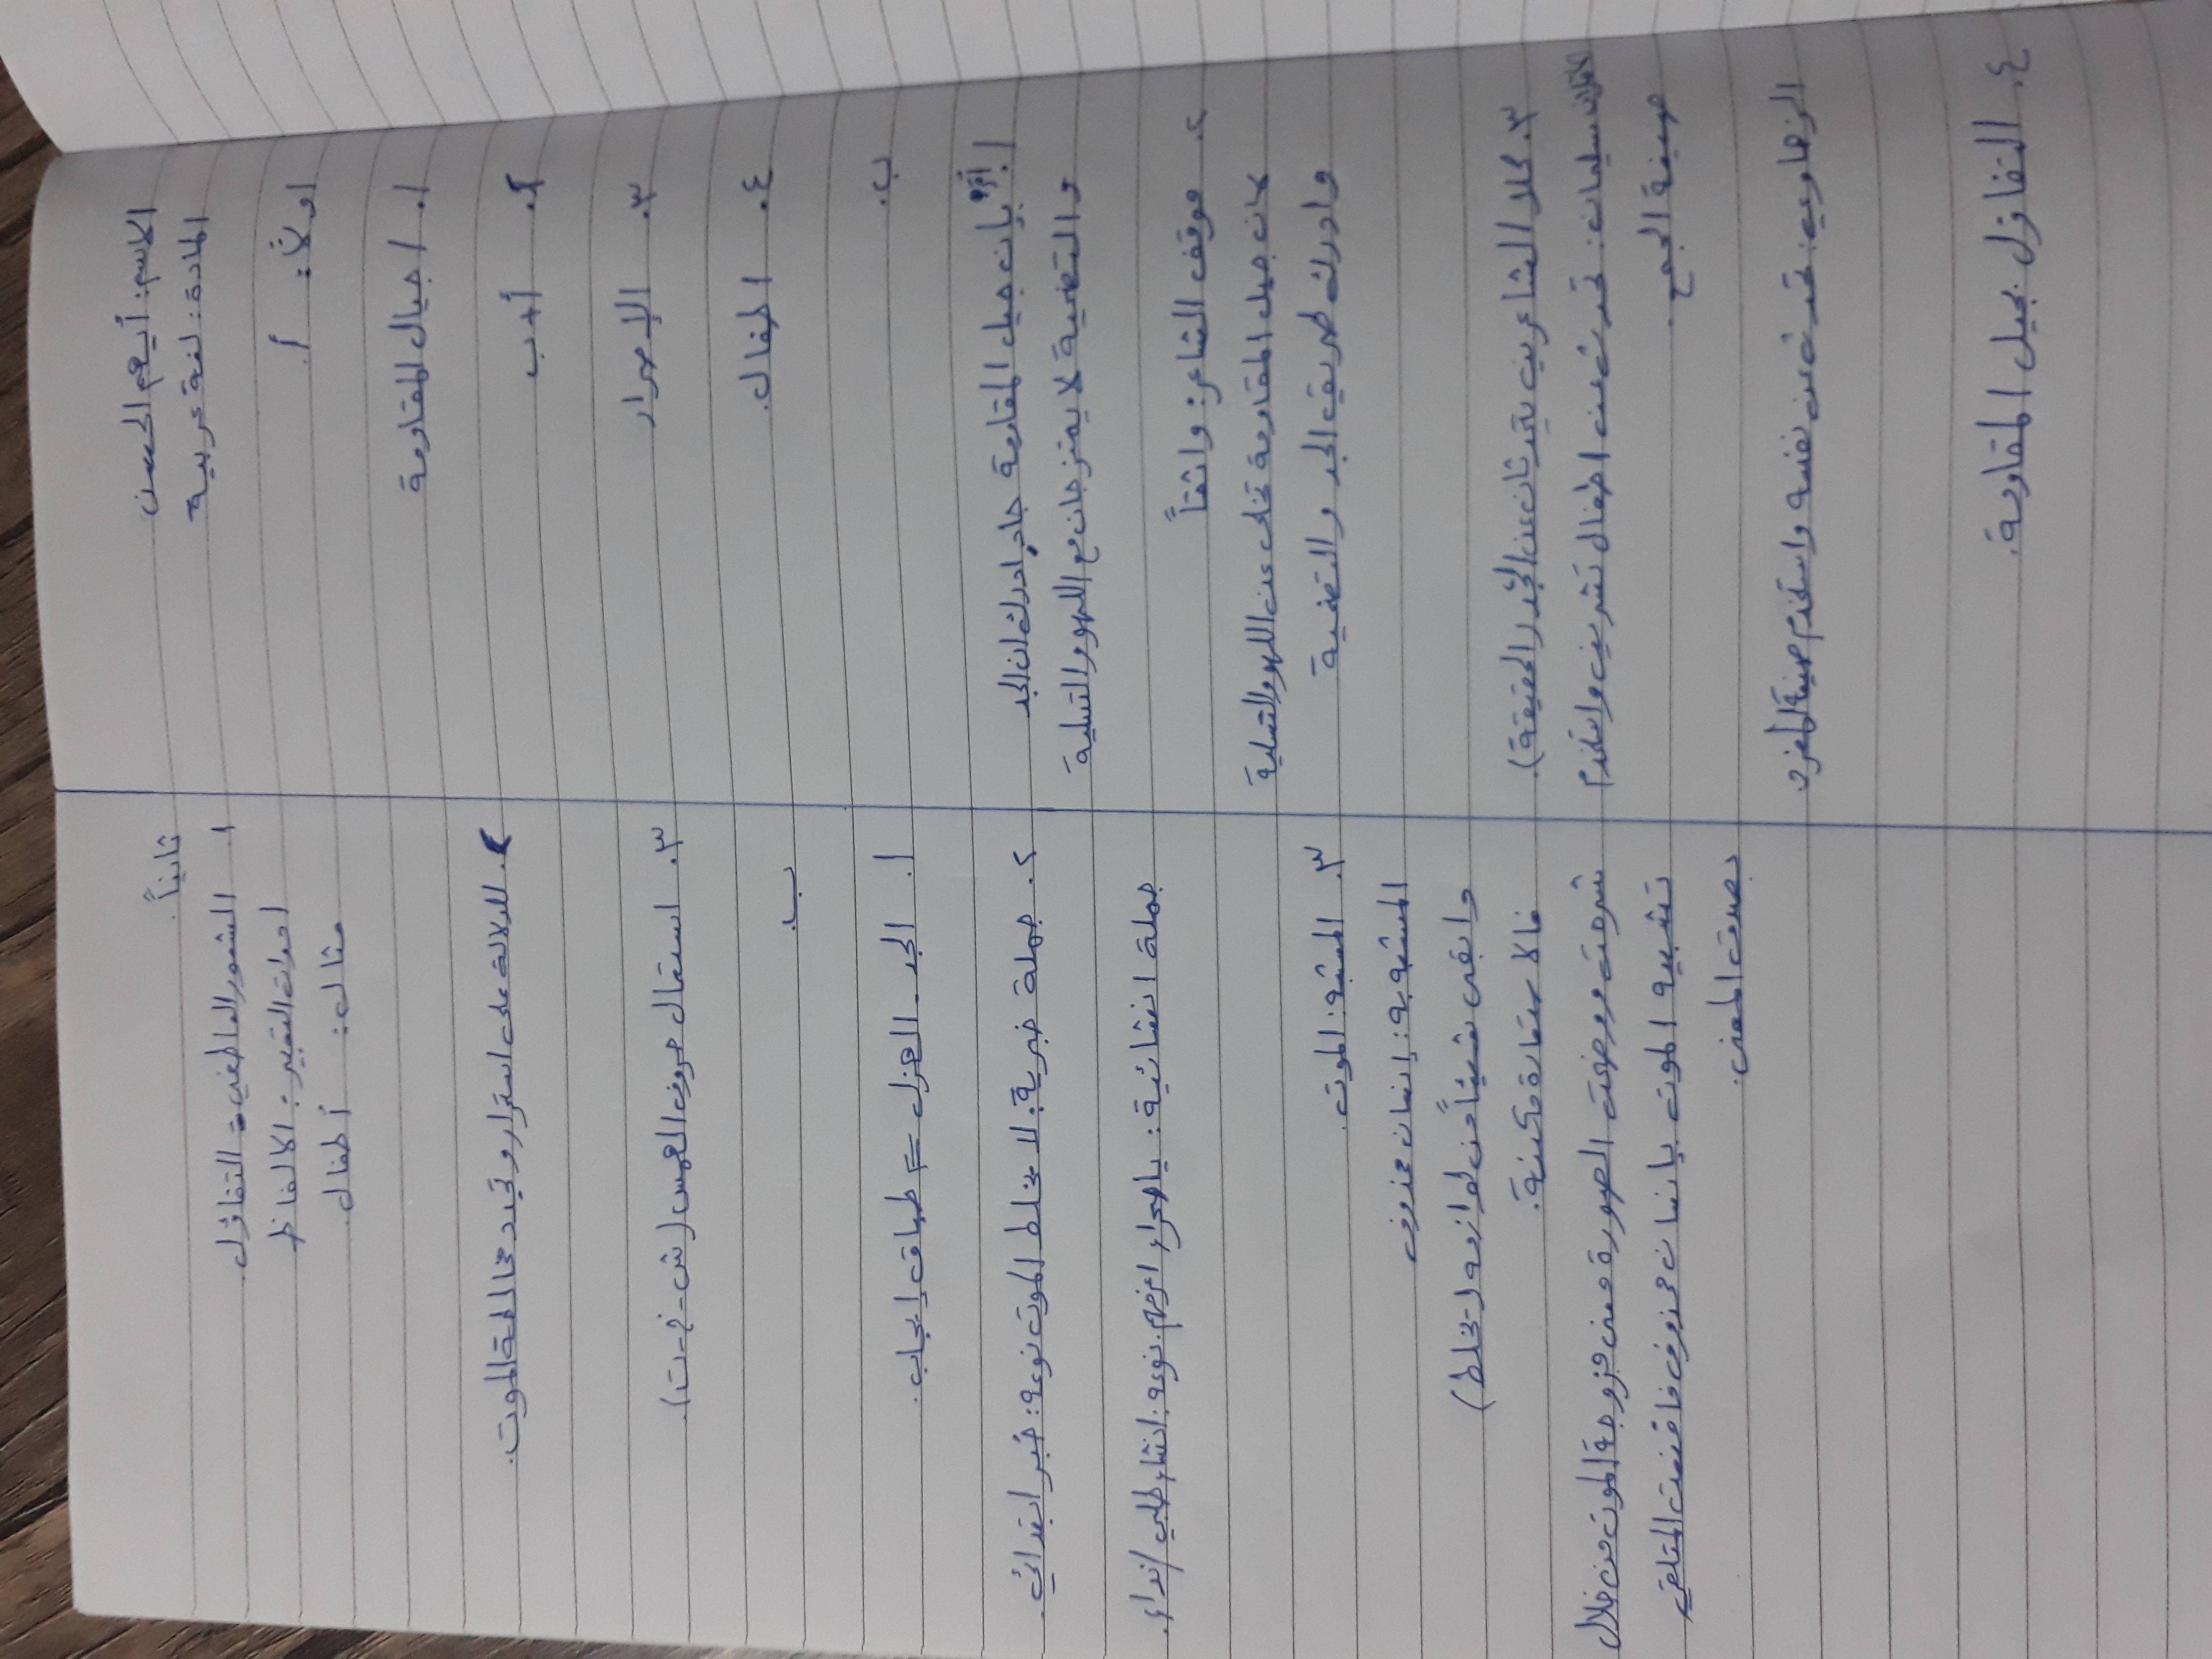 الاسم: أيهم الحسن
المادة: لغة عربية
اولاً: أ.
١. اجيال المقاومة
٢. أ+ب
٣. الإصرار
٤. اطفال.
ب.
١. أقرّ بأن جيل المقاومة جاد أدرك ان الجد
و التضحية لا يمتزجان مع اللهو والتسلية
٢. موقف الشاعر: واثقاً
لان جيل المقاومة تخلى عن اللهو والتسلية
وادرك طريق الجد والتضحية
٣. كلا الشاعرين يتحدثان عن (الجد الحقيقة).
سليمان: تحدث عن اطفال تشرين واستخدم
صيغة الجمع.
الزهاوي: تحدث عن نفسه واستخدم صيغة المفرد
٤. التفاؤل بجيل المقاومة.
ثانياً.
١. الشعور العاطفي: التفاؤل
ادوات التعبير: الالفاظ
مثال: أطفال.
٢. للدلالة على استمرار وتجدد مخالطة الموت.
٣. استعمال حروف الهمس (ش-خ-ت).
ب.
١. الجد - الهزل = طباق إيجاب.
٢. جملة خبرية: لا تخلط الموت نوعه: خبر ابتدائي.
جملة انشائية: يا صحراء نوعه: انشاء طلبي/نداء.
٣. المشبه: الموت.
المشبه به: إنسان محذوف
وابقى شيئاً من لوازمه (تخلط)
فالاستعارة مكنية.
شرحت ووضحت الصورة معنى مزوجة الموت من خلال
تشبيه الموت بإنسان محذوف فاقنعت المتلقي
بصدق المعنى.